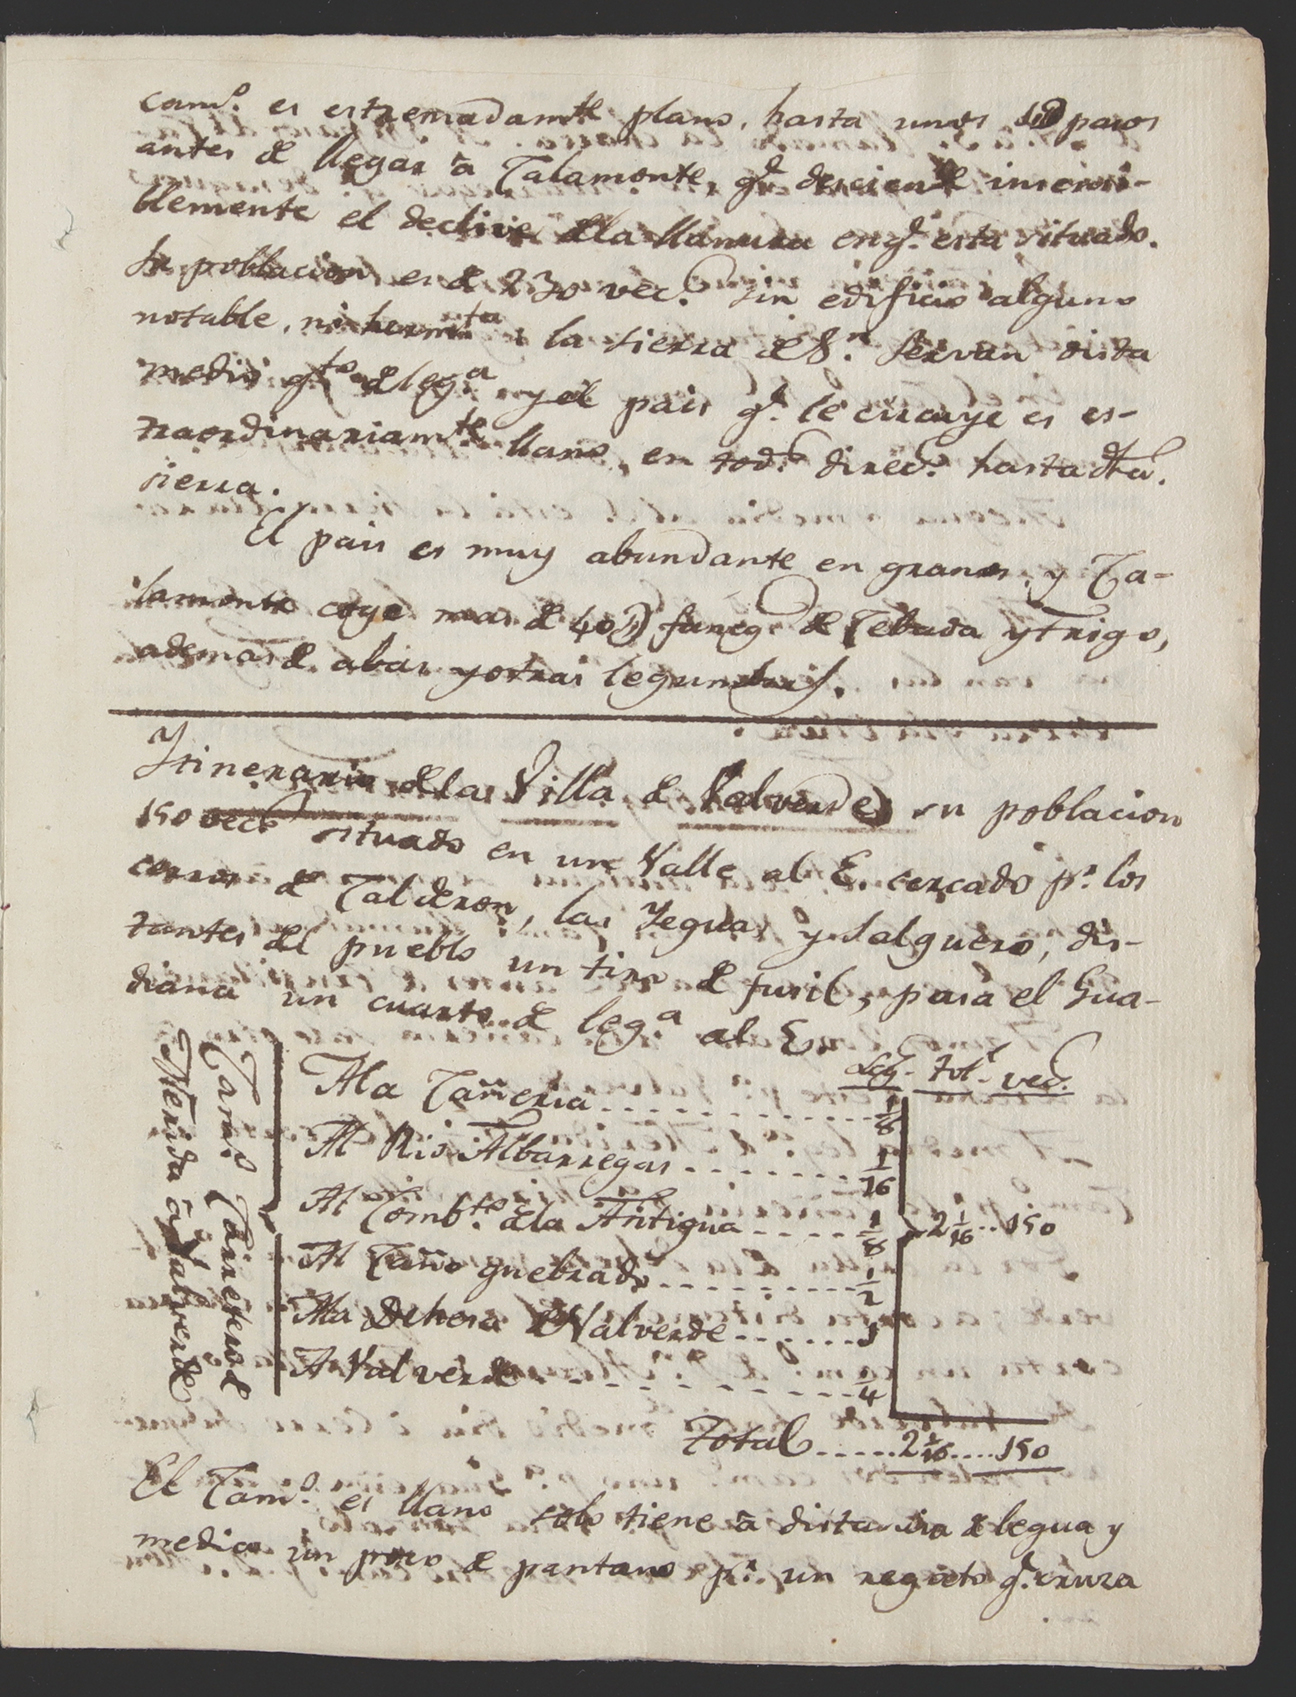 cam.º es estremadam.te plano, hasta unos pasos
antes de llegar à Calamonte, q.e desciende insensi-
blemente el declive de la llanura en q.e esta situado.
Su poblacion es de 230 vec.s sin edificio alguno
notable, ni hermita; la sierra de S.n Servan dista
medio q.to de leg.a y el pais q.e le circuye es es-
traordinariam.te llano, en tod.s direc.s hasta dha.
sierra.
El pais es muy abundante en granos, y Ca-
lamonte coge mas de 40D faneg.s de Cebada y trigo,
ademas de abas y otras legumbres.
Itinerario de la Villa de Valverde, su poblacion
150 vec.s situado en un Valle al E. cercado p.r los
cerros de Calderon, las Yeguas y Salguero, dis-
tantes del pueblo un tiro de fusil, pasa el Gua-
diana un cuarto de leg.a al E.
Cam.o Carretero de
Merida à Valverde
Leg.s tot.l vec.s
A la Cañeria 1/8
Al Rio Albarregas 1/16
Al Comb.to de la Antigua 1/8
Al Caño quebrado 1/2
A la Dehesa de Valverde 1
A Valverde 1/4
2 1/16 .. 150
Total ..... 2 1/16 .... 150
El Cam.º es llano solo tiene à distancia de legua y
media un poco de pantano p.r un regato q.e cruza